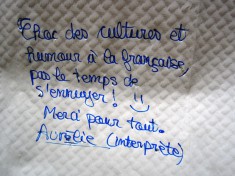 Choc des cultures et
humour à la française,
pas le temps de
s'ennuyer ! :)
Merci pour tout.
Aurélie (interprète)